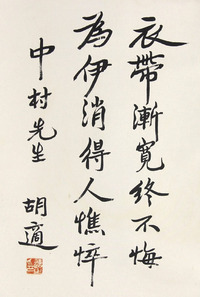 衣帶漸寬終不悔
為伊消得人憔悴
中村先生
胡適